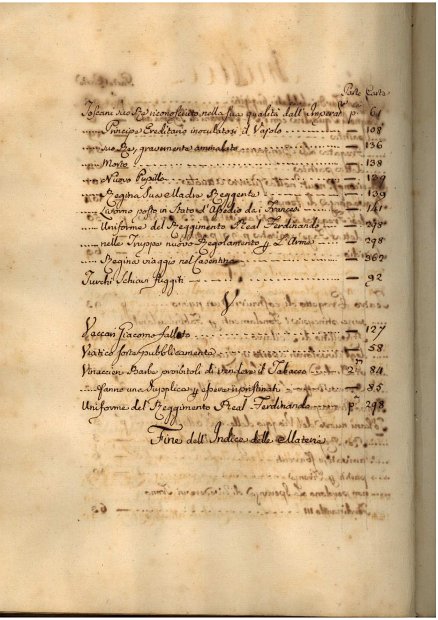 Parte Carta
Toscani suo Re riconosciuto nella sua qualità dall' Imperat.e p.a 61
Principe Ereditario inoculatosi il Vajolo — 108
suo Re, gravemente ammalato — 136
Morto — 138
Nuovo Pupillo — 139
Regina Sua Madre Reggente — 139
Livorno posto in Stato d'Assedio dai Francesi — 141
Uniforme del Reggimento Real Ferdinando — 298
nelle Truppe nuovo Regolamento — 298
Regina viaggio nel Casentino — 362
Turchi Schiavi fuggiti — 92
V
Vaccari Giacomo fallito — 127
Viatico forse pubblicamente — 58
Vivaccion Barbe proibitoli di vendare il Tabacco 2.a 84
fanno una Supplica, e — 85
Uniforme del Reggimento Real Ferdinando p.a 298
Fine dell' Indice delle Materie